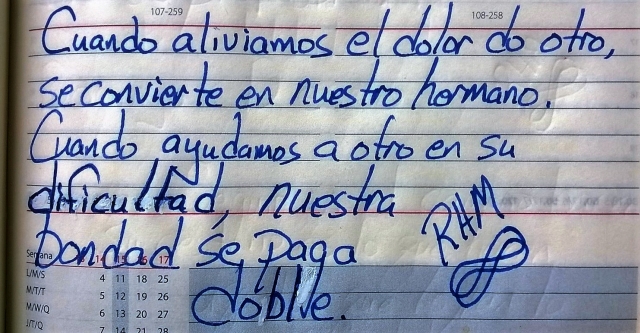 107-259 108-258
Cuando aliviamos el dolor do otro,
se convierte en nuestro hermano.
Cuando ayudamos a otro en su
dificultad, nuestra
bondad se paga
doble.
RHM
Semana 14 15 16 17
L/M/S 4 11 18 25
M/T/T 5 12 19 26
M/W/Q 6 13 20 27
J/T/Q 7 14 21 28